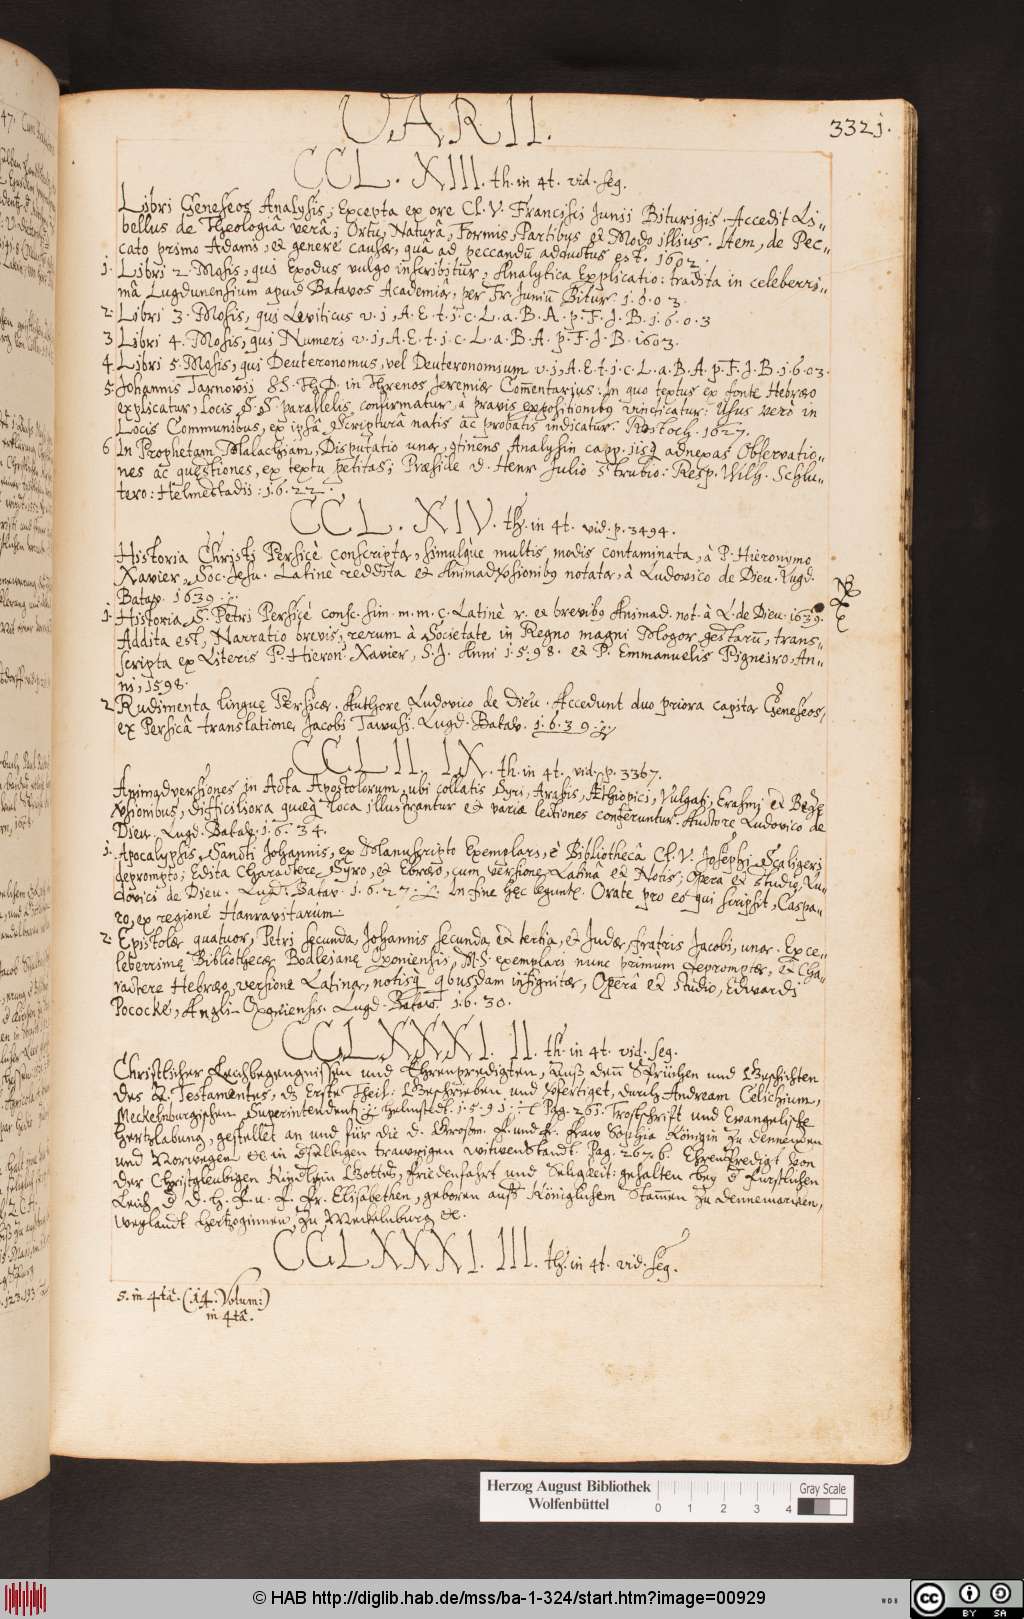 VARII.
3321.
CCL. XIII. th. in 4t. vid. seq.
Libri Geneseos Analysis; Excepta ex ore Cl. V. Francisci Junii Biturigis. Accedit Li-
bellus de Theologiâ verâ; Ortu, Naturâ, Formis, Partibus et Modo illius. Item, de Pec-
cato primo Adami, et genere causæ, quâ ad peccandū adductus est. 1602.
1. Libri 2. Mosis, qui Exodus vulgo inscribitur, Analytica Explicatio: tradita in celeberri-
mâ Lugdunensium apud Batavos Academiâ, per Fr. Juniū Bitur. 1.6.0.3.
2. Libri 3. Mosis, qui Leviticus v. i, A. E. t. i. c. L. a. B. A. p. F. J. B. 1.6.0.3
3 Libri 4. Mosis, qui Numeri v. i, A. E. t. i. c. L. a. B. A. p. F. J. B. 1603.
4. Libri 5. Mosis, qui Deuteronomus, vel Deuteronomium v. i, A. E. t. i. c. L. a. B. A. p. F. J. B. 1.6.03.
5. Johannis Tarnovii SS. Th. D. in Threnos Jeremiæ Com̄entarius: In quo textus ex fonte Hebræo
explicatur, Locis S. S. parallelis confirmatur, à pravis expositionibꝰ vindicatur: Usus verò in
Locis Communibus, ex ipsâ Scripturâ natis ac probatis indicatur. Rostoch. 1627.
6 In Prophetam Malachiam, Disputatio una, ꝯtinens Analysin capp. iisq́ adnexas Observatio-
nes ac quæstiones, ex textu petitas; Præside D. Henr Julio Strubio: Resp. Wilh. Schlu-
tero: Helmestadii: 1.6.22.
CCL. XIV. th. in 4t. vid. p. 3494.
Historia Christi Persicè conscripta, simulque multis modis contaminata, à P. Hieronymo
Xavier, Soc. Jesu. Latinè reddita et Animadversionibꝰ notata, à Ludovico de Dieu. Lugd.
Batav. 1639.
1. Historia S. Petri Persicè consc. sim. m. m. c. Latinè r. et brevibꝰ Animad. not. à L. de Dieu. 1639.
Addita est, Narratio brevis, rerum à Societate in Regno magni Mogor gestarū, trans-
scripta ex Literis P. Hieron. Xavier, S. J. Anni 1.5.98. et P. Emmanuelis Pigneiro, An-
ni, 1598.
2. Rudimenta linguę Persicæ. Authore Ludovico de Dieu. Accedunt duo priora capita Geneseos,
ex Persicâ translatione Jacobi Tawusi. Lugd. Batav. 1.6.39.
CCLII. IX. th. in 4t. vid. p. 3367.
Animadversiones in Acta Apostolorum, ubi collatis Syri, Arabis, Æthiopici, Vulgati, Erasmi et Bezę
versionibus, difficiliora quæq́ loca illustrantur et variæ lectiones conferuntur. Auctore Ludovico de
Dieu. Lugd. Batav. 1.6.34.
1. Apocalypsis Sancti Johannis, ex Manuscripto Exemplari, è Bibliothecâ Cl. V. Josephi Scaligeri
deprompto; Edita Charactere Syro, et Ebræo, cum versione Latina et Notis; Operâ et Studio, Lu-
dovici de Dieu. Lugd. Batav. 1.6.27. In fine hęc leguntʳ. Orate pro eo qui scripsit, Caspa-
ro, ex regione Hanravitarum.
2. Epistolæ quatuor, Petri secunda, Johannis secunda et tertia, et Judæ, fratris Jacobi, una. Ex ce-
leberrimę Bibliothecæ Bodleianę Oxoniensis, M.S. exemplari nunc primùm depromptæ, et Cha-
ractere Hebræo, versione Latinâ, notisq́ qbusdam insignitæ, Operâ et studio, Edwardi
Pococke, Angli-Oxoniensis. Lugd. Batav. 1.6.30.
CCLXXXI. II. th. in 4t. vid. seq.
Christlicher Leichbegengnissen und Ehrenpredigten, Auß den̄ Sprüchen und Geschichten
des A. Testamentes, dz Erste Theil: Beschrieben und verfertiget, durch Andream Celichium,
Meckelnburgischen Superintendenten. Helmstedt. 1.5.91. Pag. 261. Trostschrift und Evangelische
Hertzlabung, gestellet an und für die d. Großm. F. und F. Fraw Sophia Königin zu Dennemarcken
und Norwegen etc in derselbigen trawrigen Witwenstandt. Pag. 267.b. Ehrenpredigt von
der Christgleubigen Kindlein Gottes, Friedenfahrt und Seligkeit: gehalten bey d Fürstlichen
Leich d D. H. F. u. F. Fr. Elisabethen, geboren auß Königlichem Stam̄en zu Dennemarcken,
weylandt Hertzoginnen, zu Meckelnburg etc.
CCLXXXI. III. th. in 4t. vid. seq.
5. in 4tâ. (14. Volum:)
in 4tâ.
Herzog August Bibliothek
Wolfenbüttel
0 1 2 3 4
Gray Scale
© HAB http://diglib.hab.de/mss/ba-1-324/start.htm?image=00929
WDB
cc BY SA